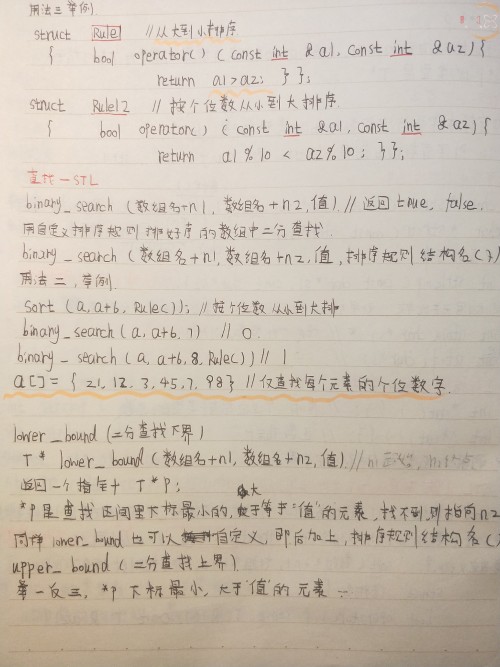 用法三 举例
struct Rule1 //从大到小排序
{ bool operator() (const int &a1, const int &a2){
return a1>a2; }};
struct Rule12 //按个位数从小到大排序
{ bool operator() (const int &a1, const int &a2){
return a1%10 < a2%10; }};
查找—STL
binary_search(数组名+n1, 数组名+n2, 值) //返回true, false.
用自定义排序规则排好序的数组中二分查找
binary_search(数组名+n1, 数组名+n2, 值, 排序规则结构名())
用法二, 举例
sort(a, a+6, Rule()); //按个位数从小到大排
binary_search(a, a+6, 7) // 0
binary_search(a, a+6, 8, Rule()) // 1
a[] = {21, 12, 3, 45, 7, 98} //仅查找每个元素的个位数字.
lower_bound(二分查找下界)
T* lower_bound(数组名+n1, 数组名+n2, 值) //
返回一个指针 T*P;
*P是查找区间里下标最小的, 大于等于"值"的元素, 找不到, 则指向n2
同样lower_bound也可以自定义, 即后加上, 排序规则结构名()
upper_bound(二分查找上界).
举一反三, *P下标最小, 大于"值"的元素